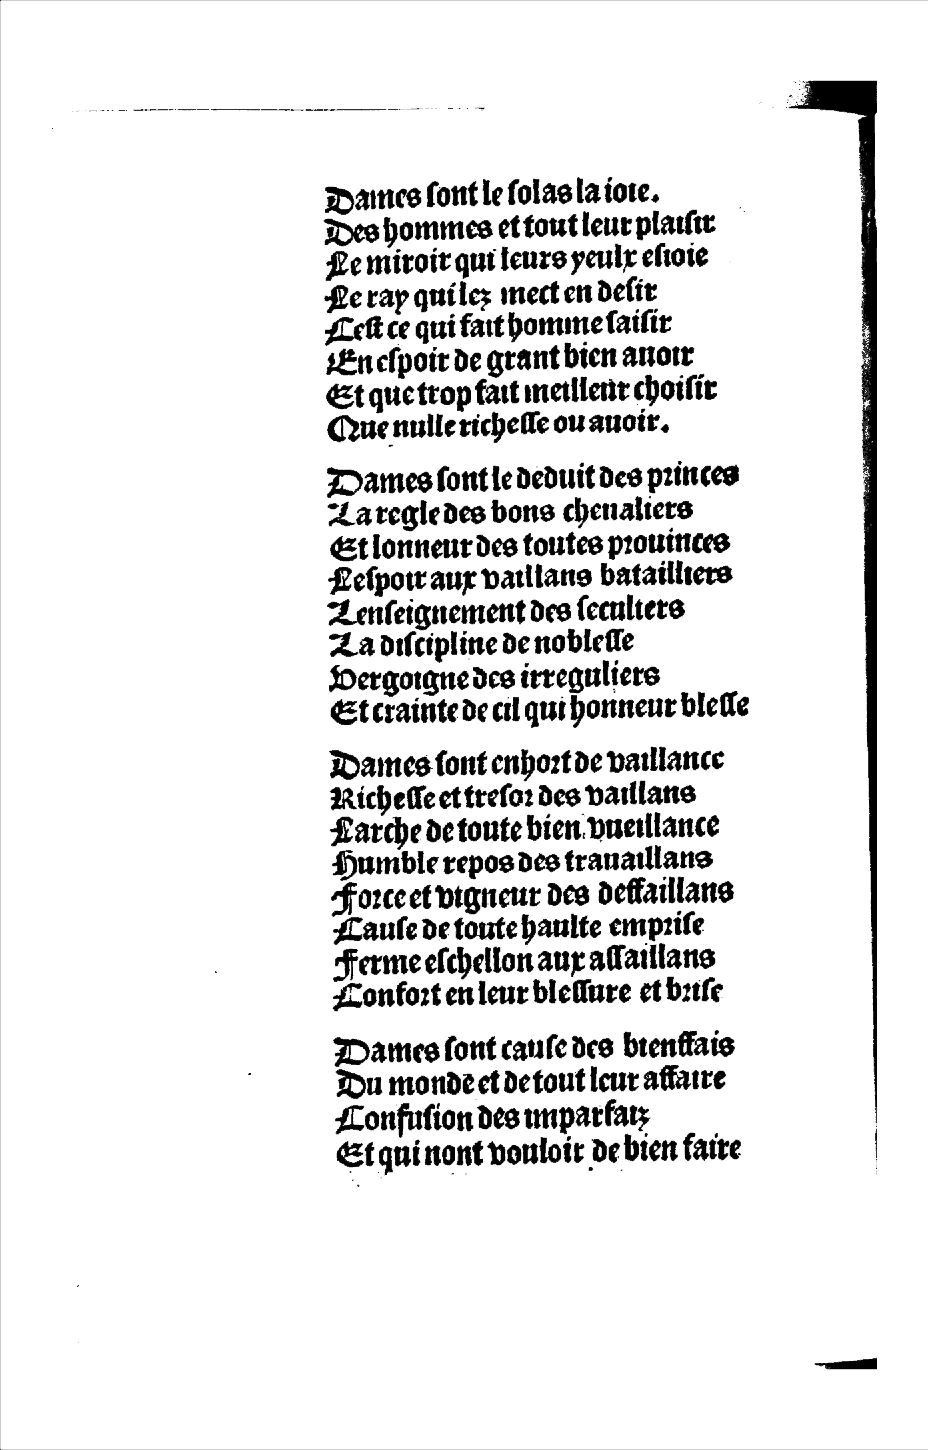 Dames sont le solas la ioie.
Des hommes et tout leur plaisir
Le miroir qui leurs yeulx esioie
Le ray qui lez mect en desir
Cest ce qui fait homme saisir
En espoir de grant bien auoir
Et que trop fait meilleur choisir
Que nulle richesse ou auoir.
Dames sont le deduit des princes
La regle des bons cheualiers
Et lonneur des toutes prouinces
Lespoir aux vaillans batailliers
Lenseignement des seculiers
La discipline de noblesse
Vergoigne des irreguliers
Et crainte de cil qui honneur blesse
Dames sont enhort de vaillance
Richesse et tresor des vaillans
Larche de toute bien vueillance
Humble repos des trauaillans
Force et vigneur des deffaillans
Cause de toute haulte emprise
Ferme eschellon aux assaillans
Confort en leur blessure et brise
Dames sont cause des bienffais
Du monde et de tout leur affaire
Confusion des imparfaiz
Et qui nont vouloir de bien faire